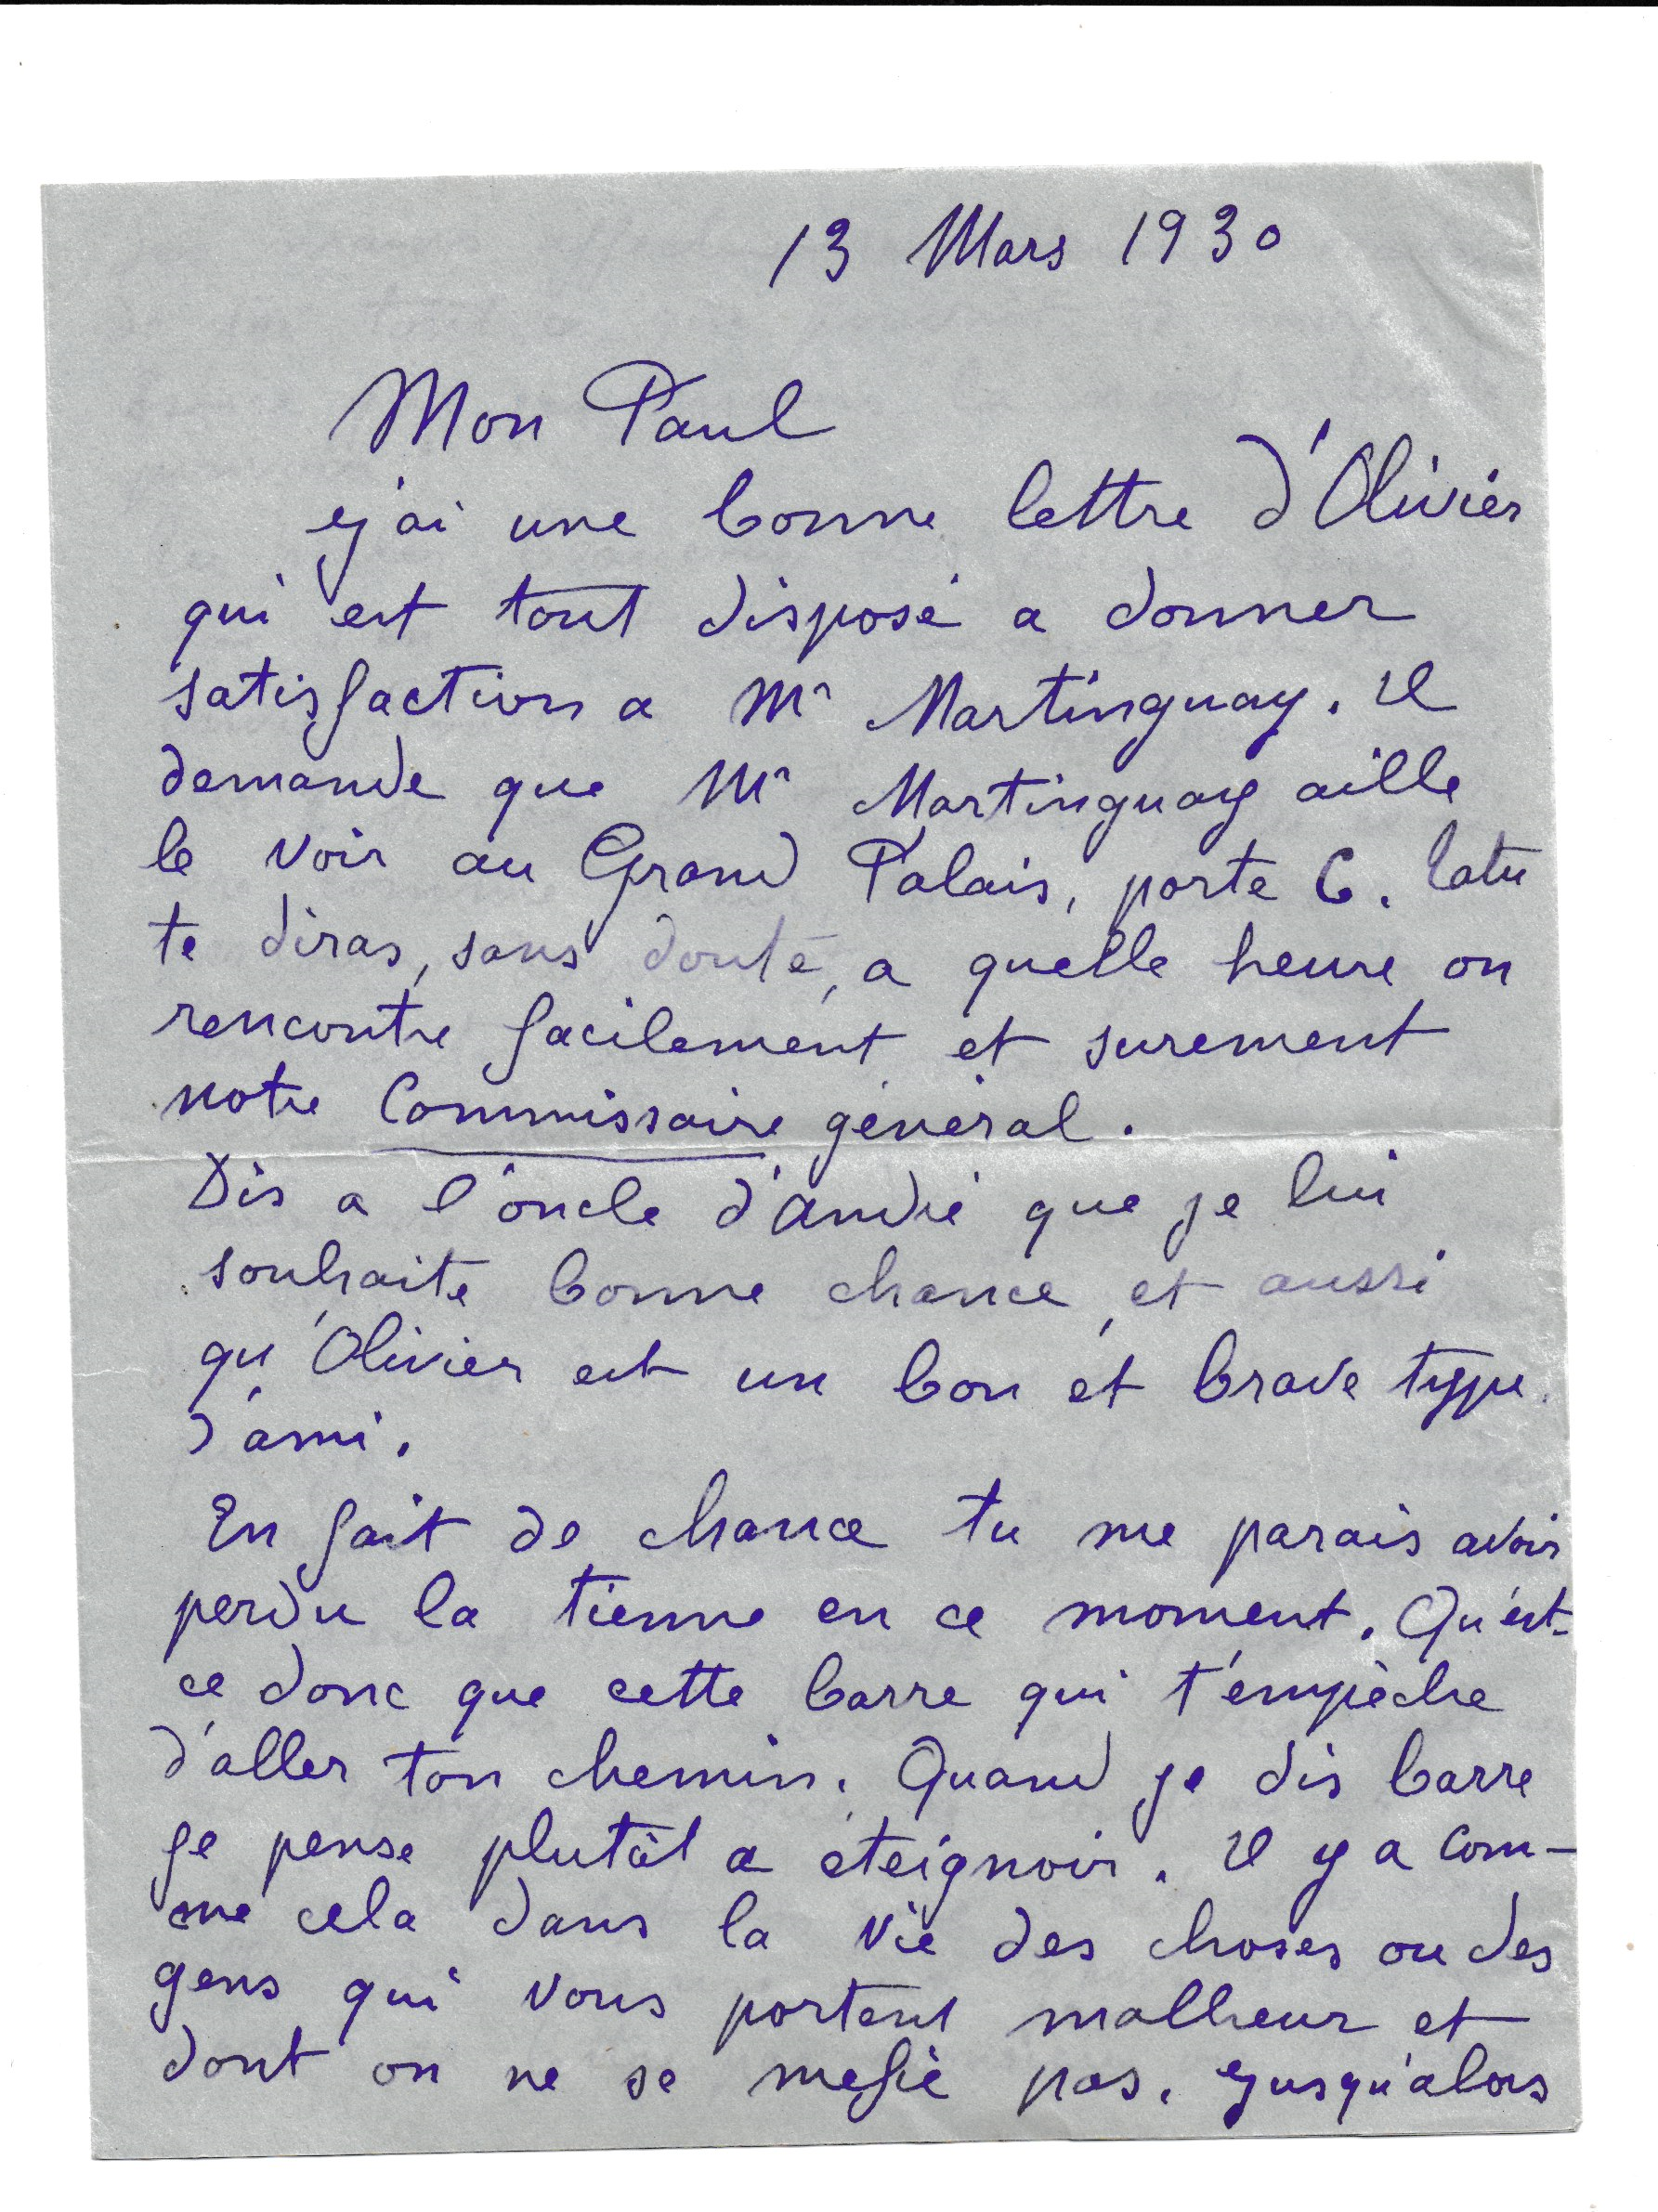 13 Mars 1930
Mon Paul
j'ai une bonne lettre d'Olivier
qui est tout disposé a donner
satisfaction a Mr Martinguay. Il
demande que Mr Martinguay aille
le voir au Grand Palais, porte C.
te diras, sans doute, a quelle heure on
rencontre facilement et surement
notre Commissaire général.
Dis a l'oncle d'André que je lui
souhaite bonne chance, et aussi
qu'Olivier est un bon et brave type
d'ami.
En fait de chance tu me parais avoir
perdu la tienne en ce moment. Qu'est-
ce donc que cette barre qui t'empèche
d'aller ton chemin. Quand je dis barre
je pense plutôt a éteignoir. Il y a com-
me cela dans la vie des choses ou des
gens qui vous portent malheur et
dont on ne se mefie pas. Jusqu'alors